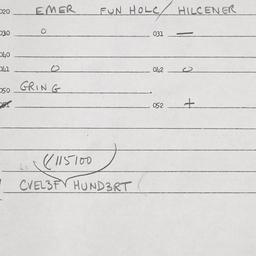 020 EMER FUN HOLC/HILCENER
030 o 031 —
040
041 o 042 o
050 GRING
052 +
115100
CVEL3F HUND3RT